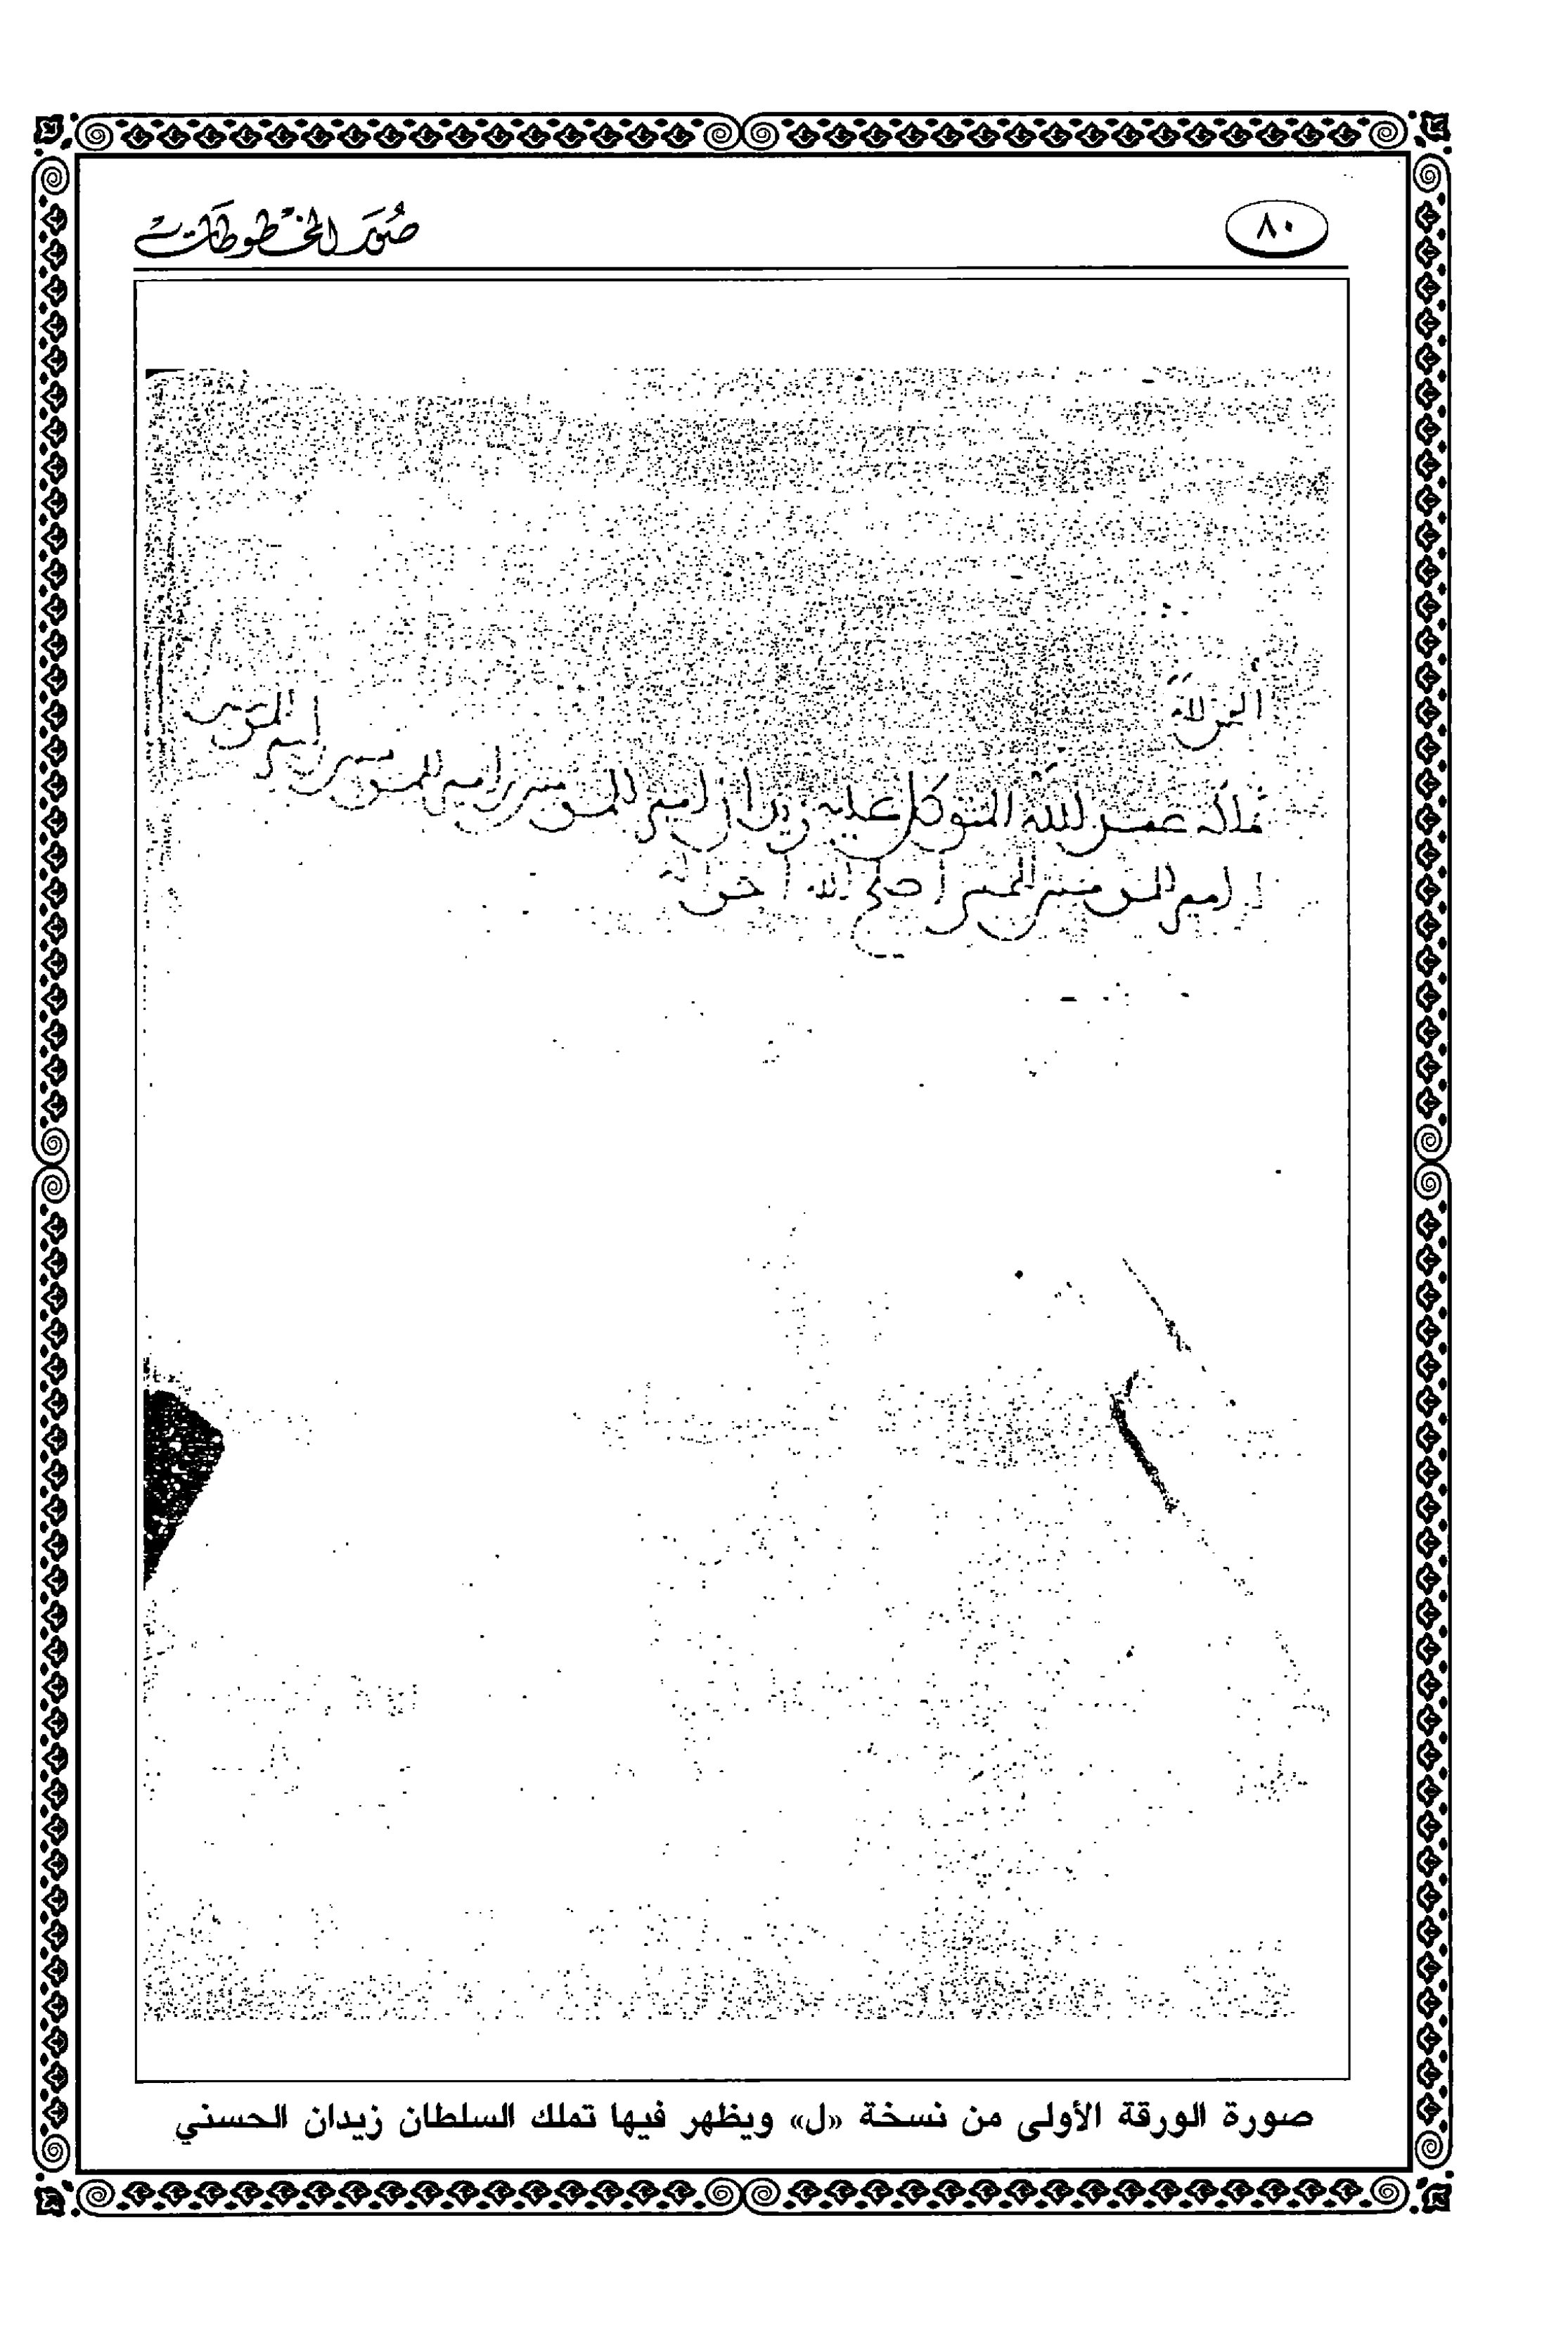 ٨٠
صُوَر المخطُوطَات
الحمد لله
تملكه عبد الله المتوكل عليه زيدان أمير المومنين بن أمير المومنين بن أمير المومنين
بن أمير المومنين الحسني أصلح الله أحواله
صورة الورقة الأولى من نسخة «ل» ويظهر فيها تملك السلطان زيدان الحسني